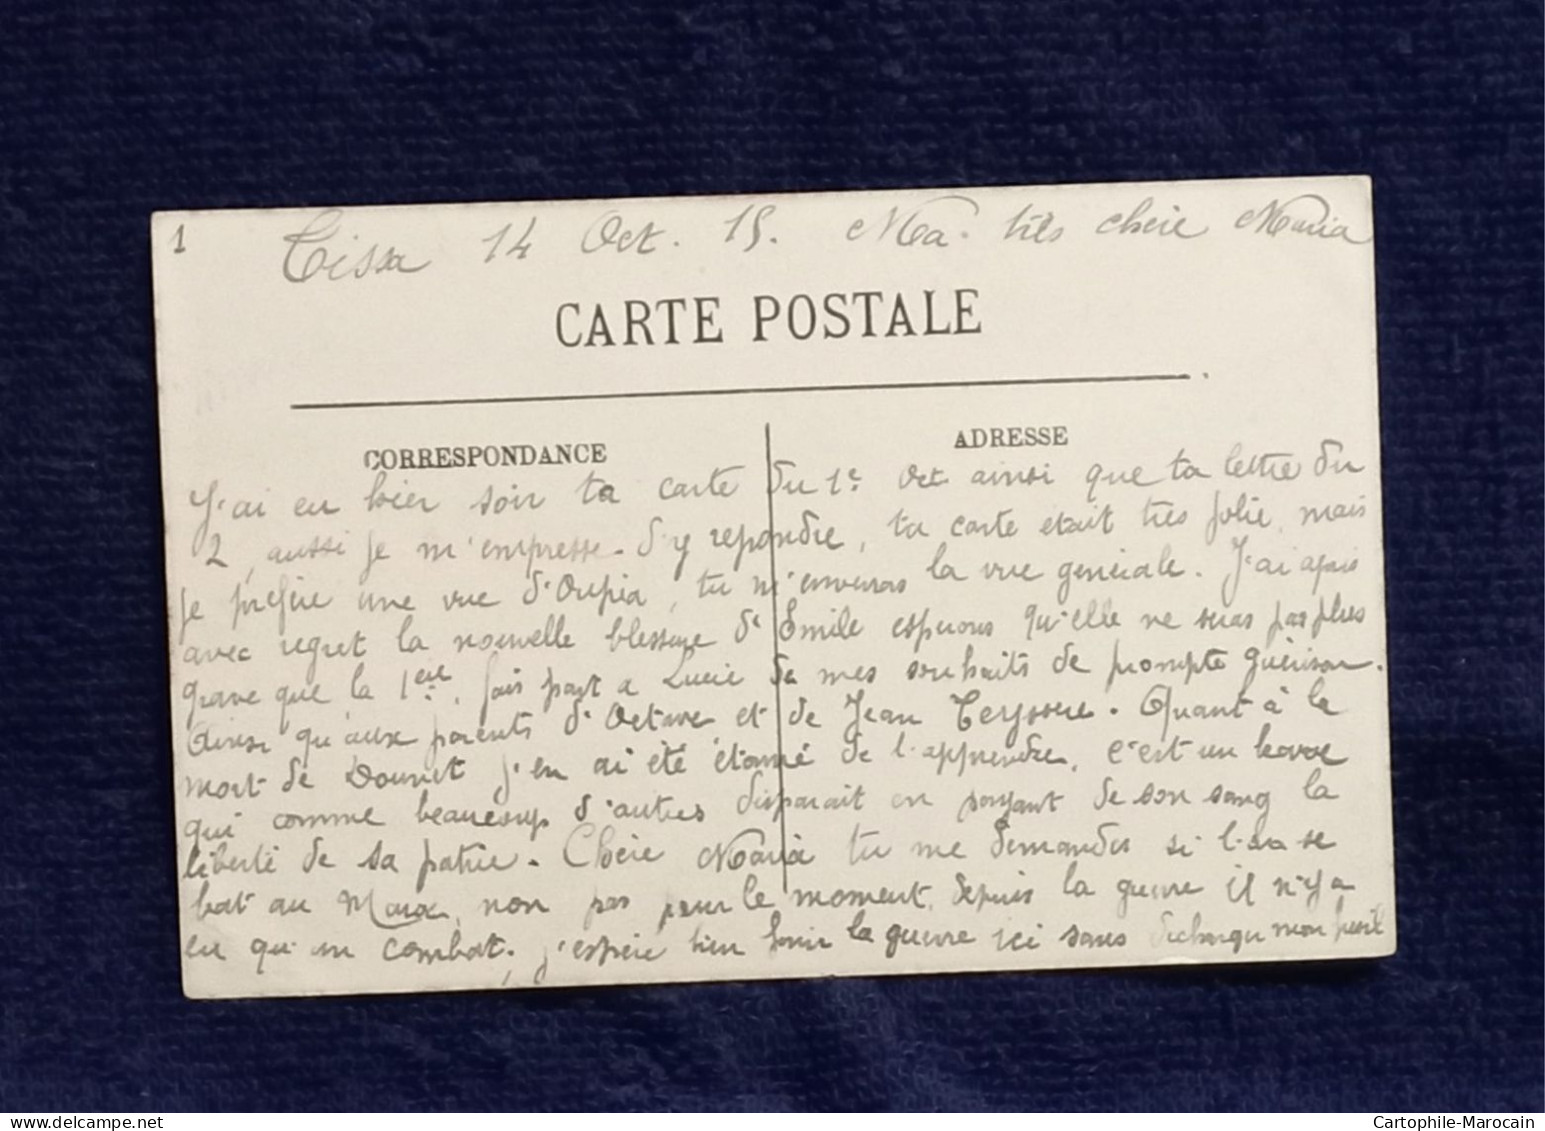 1 Tissa 14 Oct. 15. Ma très chère Maria
CARTE POSTALE
CORRESPONDANCE
ADRESSE
J'ai eu hier soir ta carte du 1er Oct ainsi que ta lettre du
2, aussi je m'empresse d'y repondre, ta carte était très jolie, mais
je prefère une vue d'Oupia, tu m'enverras la vue generale. J'ai apris
avec regret la nouvelle blessure d'Emile esperons qu'elle ne seras pas plus
grave que la 1ère, fais part a Lucie de mes souhaits de prompte guérison.
Ainsi qu'aux parents d'Octave et de Jean Teyssere. Quant à la
mort de Dournet j'en ai été étonné de l'apprendre, c'est un
qui comme beaucoup d'autres disparait en payant de son sang la
liberté de sa patrie. Chère Maria tu me demandes si l'on se
bat au Maroc, non pas pour le moment, depuis la guerre il n'y a
eu qu'un combat, j'espère bien finir la guerre ici sans decharger mon fusil
Cartophile-Marocain